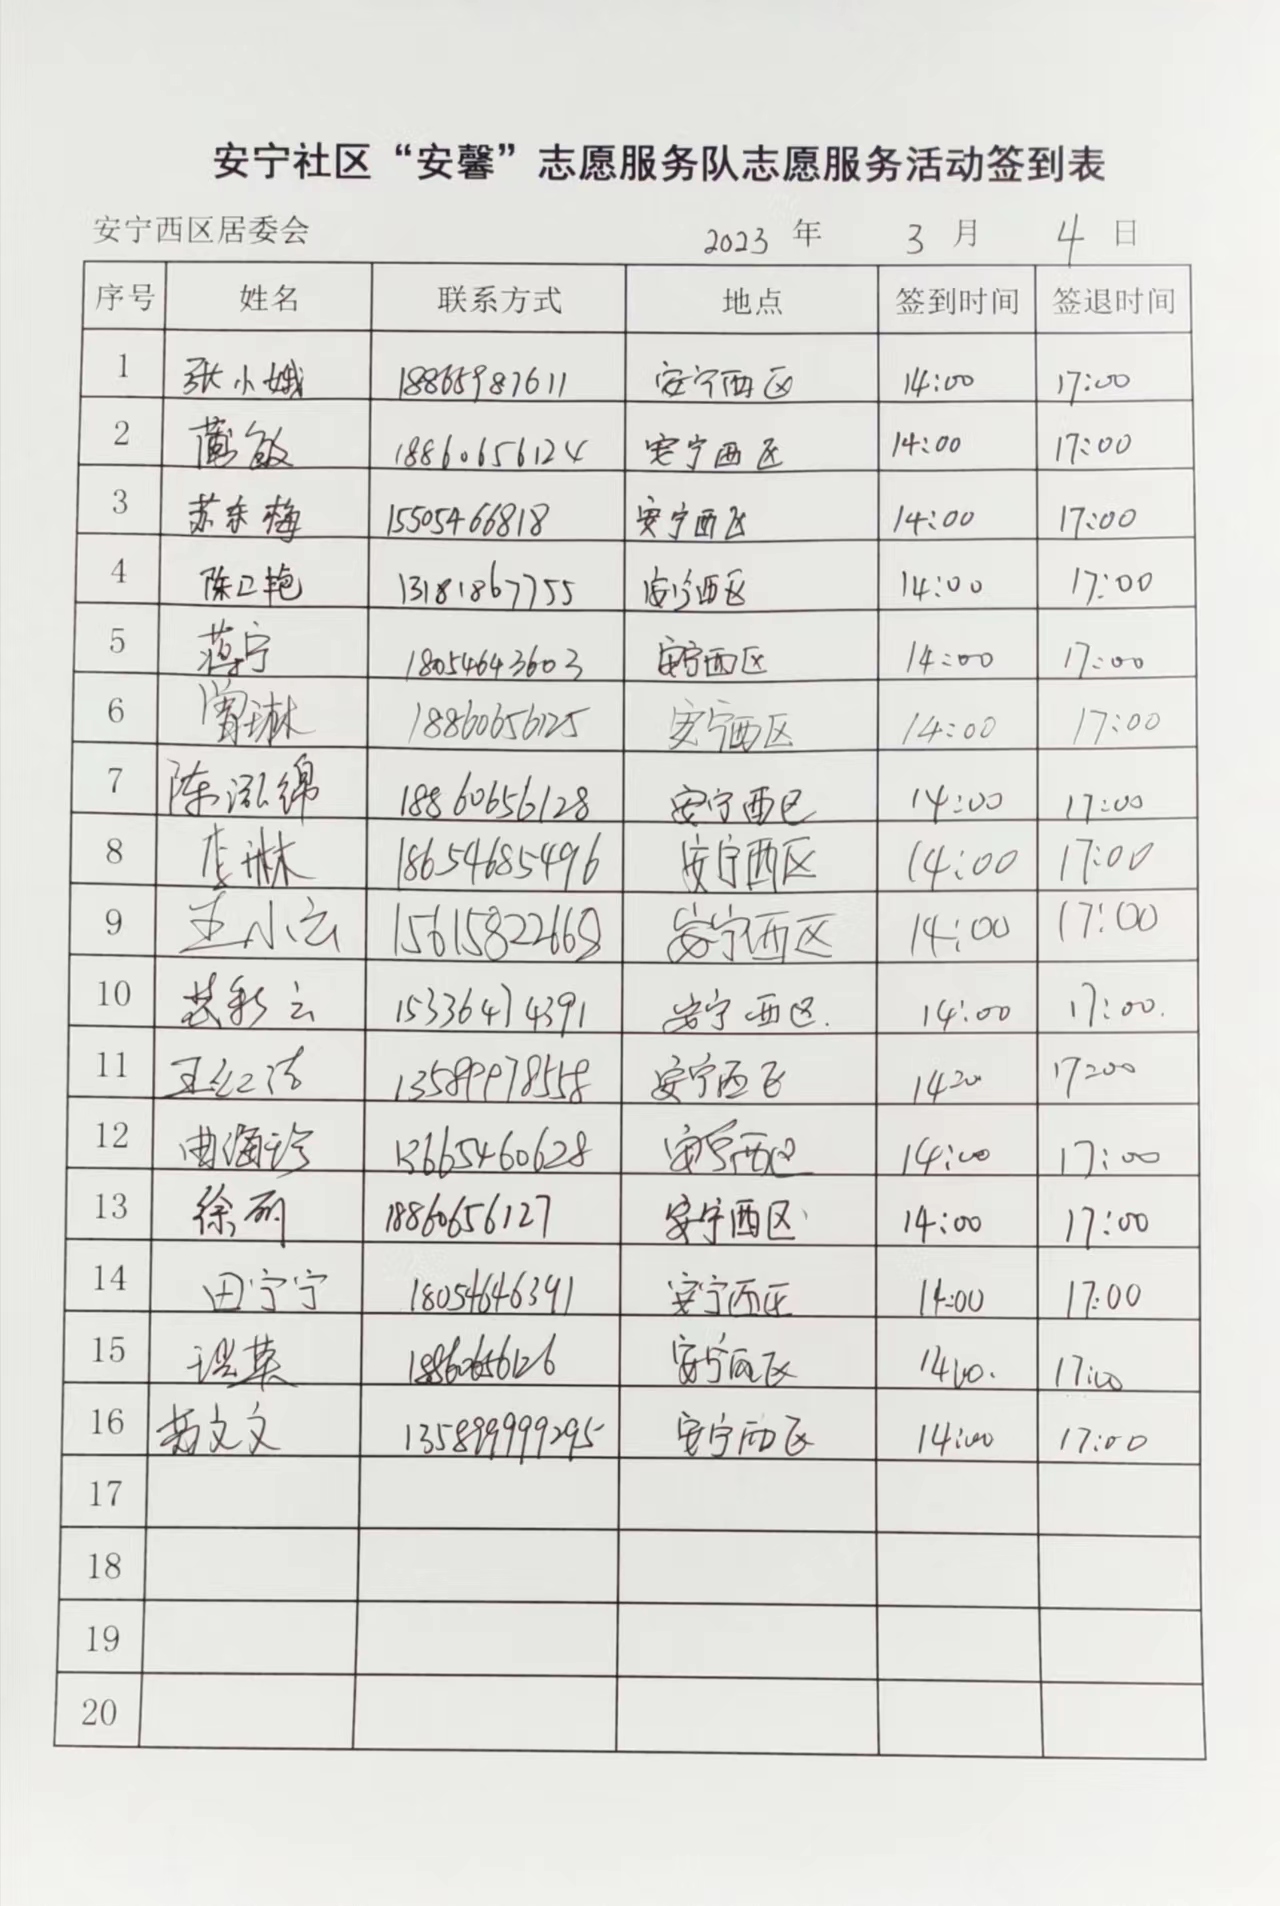 安宁社区“安馨”志愿服务队志愿服务活动签到表
安宁西区居委会 2023 年 3 月 4 日
序号 姓名 联系方式 地点 签到时间 签退时间
1 张小娥 18865987611 安宁西区 14:00 17:00
2 敏 18860656124 安宁西区 14:00 17:00
3 苏东梅 15505466818 安宁西区 14:00 17:00
4 陈卫艳 13181867755 安宁西区 14:00 17:00
5 蒋宁 18054643603 安宁西区 14:00 17:00
6 曾琳 18860656125 安宁西区 14:00 17:00
7 陈泓锦 18860656128 安宁西区 14:00 17:00
8 李琳 18654685496 安宁西区 14:00 17:00
9 王小云 15615822668 安宁西区 14:00 17:00
10 彩云 15336474391 安宁西区. 14:00 17:00.
11 王红洁 13589978558 安宁西区 14:00 17:00
12 曲海珍 13665460628 安宁西区 14:00 17:00
13 徐丽 18860656127 安宁西区 14:00 17:00
14 田宁宁 18054646391 安宁西区 14:00 17:00
15 英 18860656126 安宁西区 14:00. 17:00
16 文文 135899999295 安宁西区 14:00 17:00
17
18
19
20